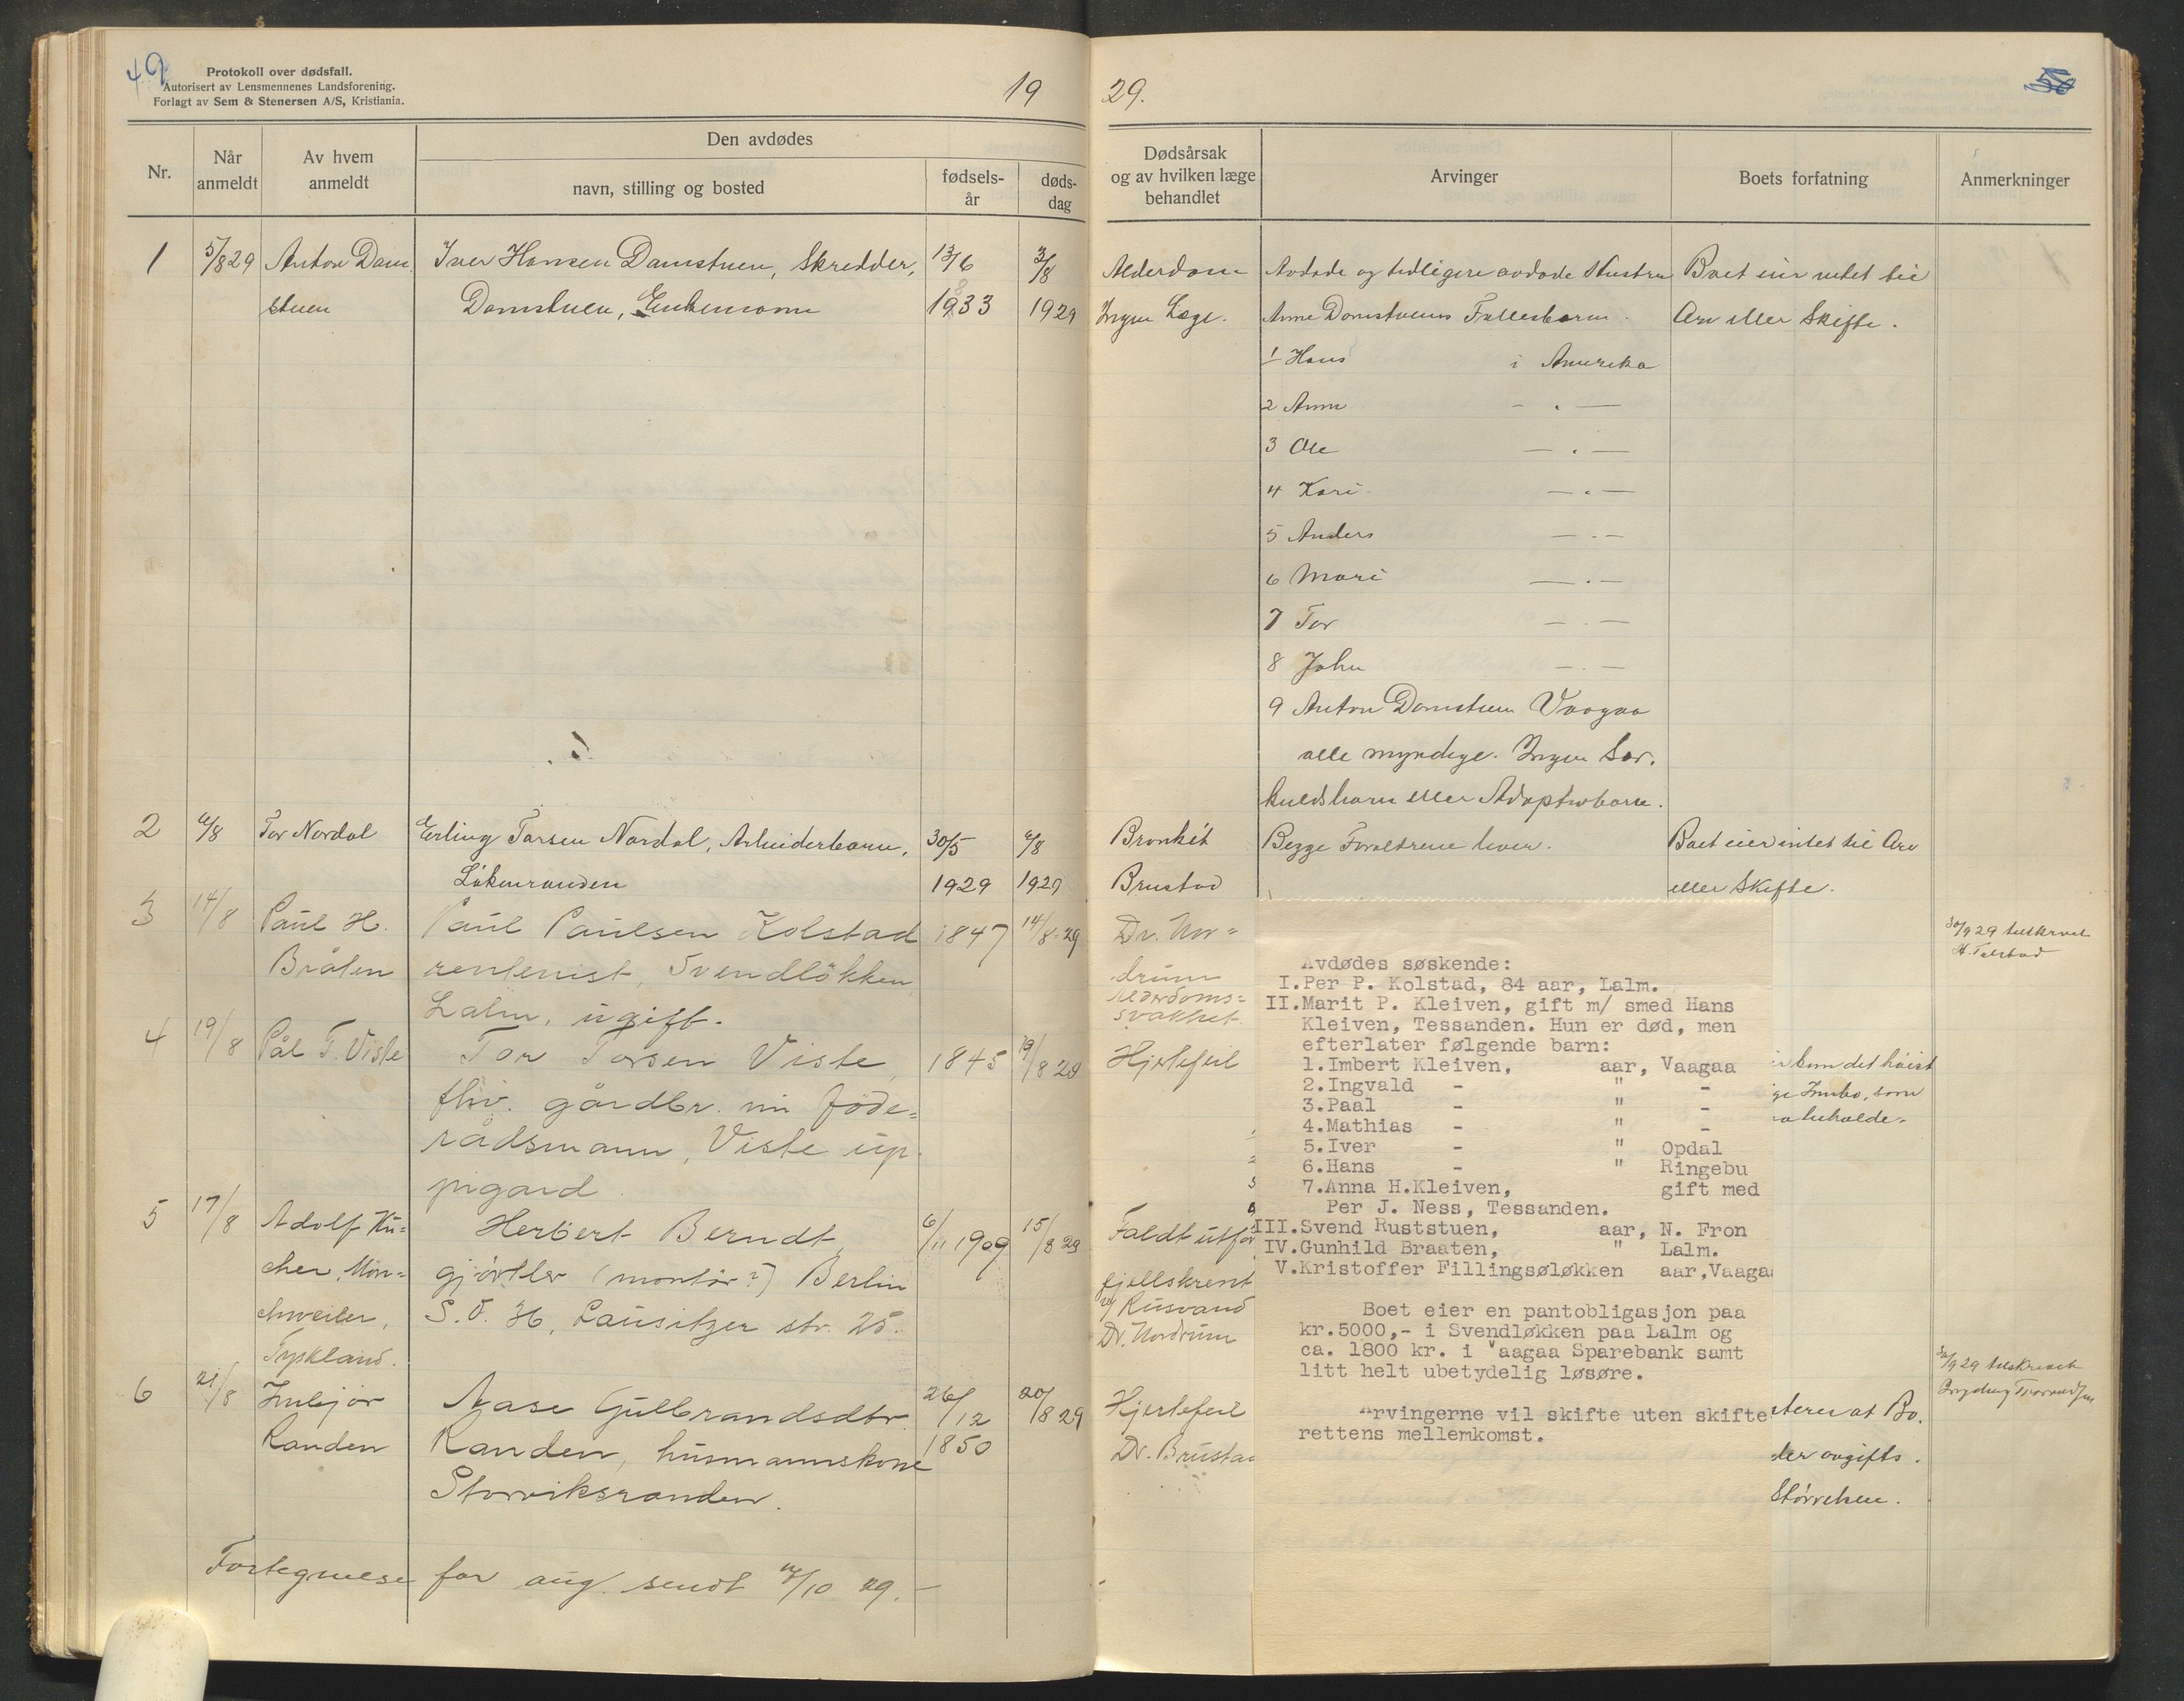 49
Protokoll over dødsfall.
Autorisert av Lensmennenes Landsforening.
Forlagt av Sem & Stenersen A/S, Kristiania.
19 29.
Nr.
Når anmeldt
Av hvem anmeldt
Den avdødes
navn, stilling og bosted
fødsels-år
døds-dag
Dødsårsak og av hvilken læge behandlet
Arvinger
Boets forfatning
Anmerkninger
1 5/8 29 Anton Dam Iver Hansen Damstuen, Skredder, 13/6 3/8 Alderdom Avdøde og tidligere avdøde Hustru Boet eier intet til
stuen Damstuen, Enkemann 1833 1929 Ingen Læge. Anne Damstuens Fællesbarn. Arv eller Skifte.
1 Hans i Amerika
2 Anne — " —
3 Ole — " —
4 Kari — " —
5 Anders — " —
6 Mari — " —
7 Tor — " —
8 John — " —
9 Anton Damstuen Vaagaa
alle myndige. Ingen Sær.
kuldsbarn eller Adoptivbarn.
2 6/8 Tor Nordal Erling Torsen Nordal, Arbeiderbarn, 30/5 6/8 Bronkit Begge Forældrene lever. Boet eier intet til Arv
Løkenranden 1929 1929 Brustad eller Skifte.
3 14/8 Paul H. Paul Paulsen Kolstad 1847 14/8-29 Dr. Nor= 30/9 29 tilskrevet
Bråten rentenist, Svendløkken drum
Lalm, ugift. alderdoms=
svakhet
4 19/8 Pål T. Viste Tor Torsen Viste, 1845 19/8 29 Hjertefeil
fhv. gårdbr. nu føde=
rådsmann, Viste up
pigard.
5 17/8 Adolf Kü= Herbert Berndt, 6/11 1909 15/8 29 Faldt utfor
cher, Mön= gjörtler (montör?) Berlin fjellskrent
chweiler, S.O. 36, Lausitzer str. 25. v/ Rusvand
Tyskland. Dr. Nordrum
6 21/8 Imbjør Aase Gulbrandsdtr. 26/12 20/8 29 Hjertefeil
Randen Randen, husmannskone 1850 Dr. Brustad
Storviksranden.
Fortegnelse for aug. sendt /10 29. —
Avdødes søskende:
I.Per P. Kolstad, 84 aar, Lalm.
II.Marit P. Kleiven, gift m/ smed Hans
Kleiven, Tessanden. Hun er død, men
efterlater følgende barn:
1.Imbert Kleiven, aar, Vaagaa
2.Ingvald - " -
3.Paal - " -
4.Mathias - " -
5.Iver - " Opdal
6.Hans - " Ringebu
7.Anna H.Kleiven, gift med
Per J. Ness, Tessanden.
III.Svend Ruststuen, aar, N. Fron
IV.Gunhild Braaten, " Lalm.
V.Kristoffer Fillingsøløkken aar,Vaagaa
Boet eier en pantobligasjon paa
kr.5000,- i Svendløkken paa Lalm og
ca. 1800 kr. i Vaagaa Sparebank samt
litt helt ubetydelig løsøre.
Arvingerne vil skifte uten skifte
rettens mellemkomst.
kun det høist
ge Innbo, som
beholde.
30/9 29 tilskrevet
terer at Bo.
der avgifts.
Størrelsen.